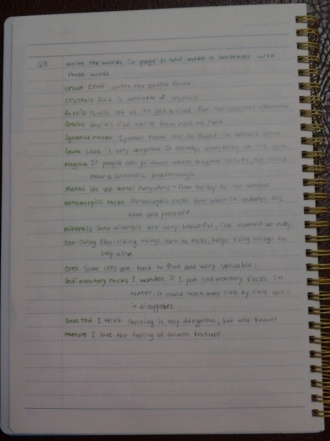 Q3. Using the words in page 61 and make a sentences with
those words.
crust Crust
crystals Rock is of crystals.
fossils Fossils let us to
grains Grains size varies from rock to rock
igneous rocks Igneous rocks can be found in
lava Lava is very dangerous it destroy everything in its
magma If people can go down where magma occurs, we could
make a scientific breakthrough
metal We use metal everyday - from the key to the
metamorphic rocks Metamorphic rocks form when it undergoes
heat and pressure
minerals Some minerals are very beautiful, like diamond or ruby.
non-living Non-living things such as rocks, helps living things to
stay alive
ores Some ores are hard to find and very valuable.
sedimentary rocks I wonder, if I put sedimentary rocks in
water, it could melt away little by little until
it disappears
smelted I think smelting is very dangerous, but who knows?
texture I love the feeling of smooth texture